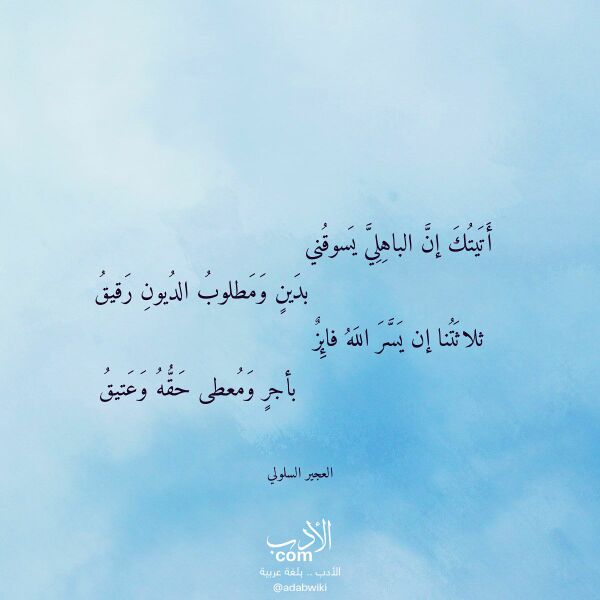 أَتَيتُكَ إنَّ الباهِلِيَّ يَسوقُني
بدَينٍ وَمَطلوبُ الدُيونِ رَقيقُ
ثلاثَتُنا إن يَسَّرَ اللَهُ فائِزٌ
بأجرٍ وَمُعطى حَقُّهُ وَعَتيقُ
العجير السلولي
الأدب
com
الأدب .. بلغة عربية
@adabwiki